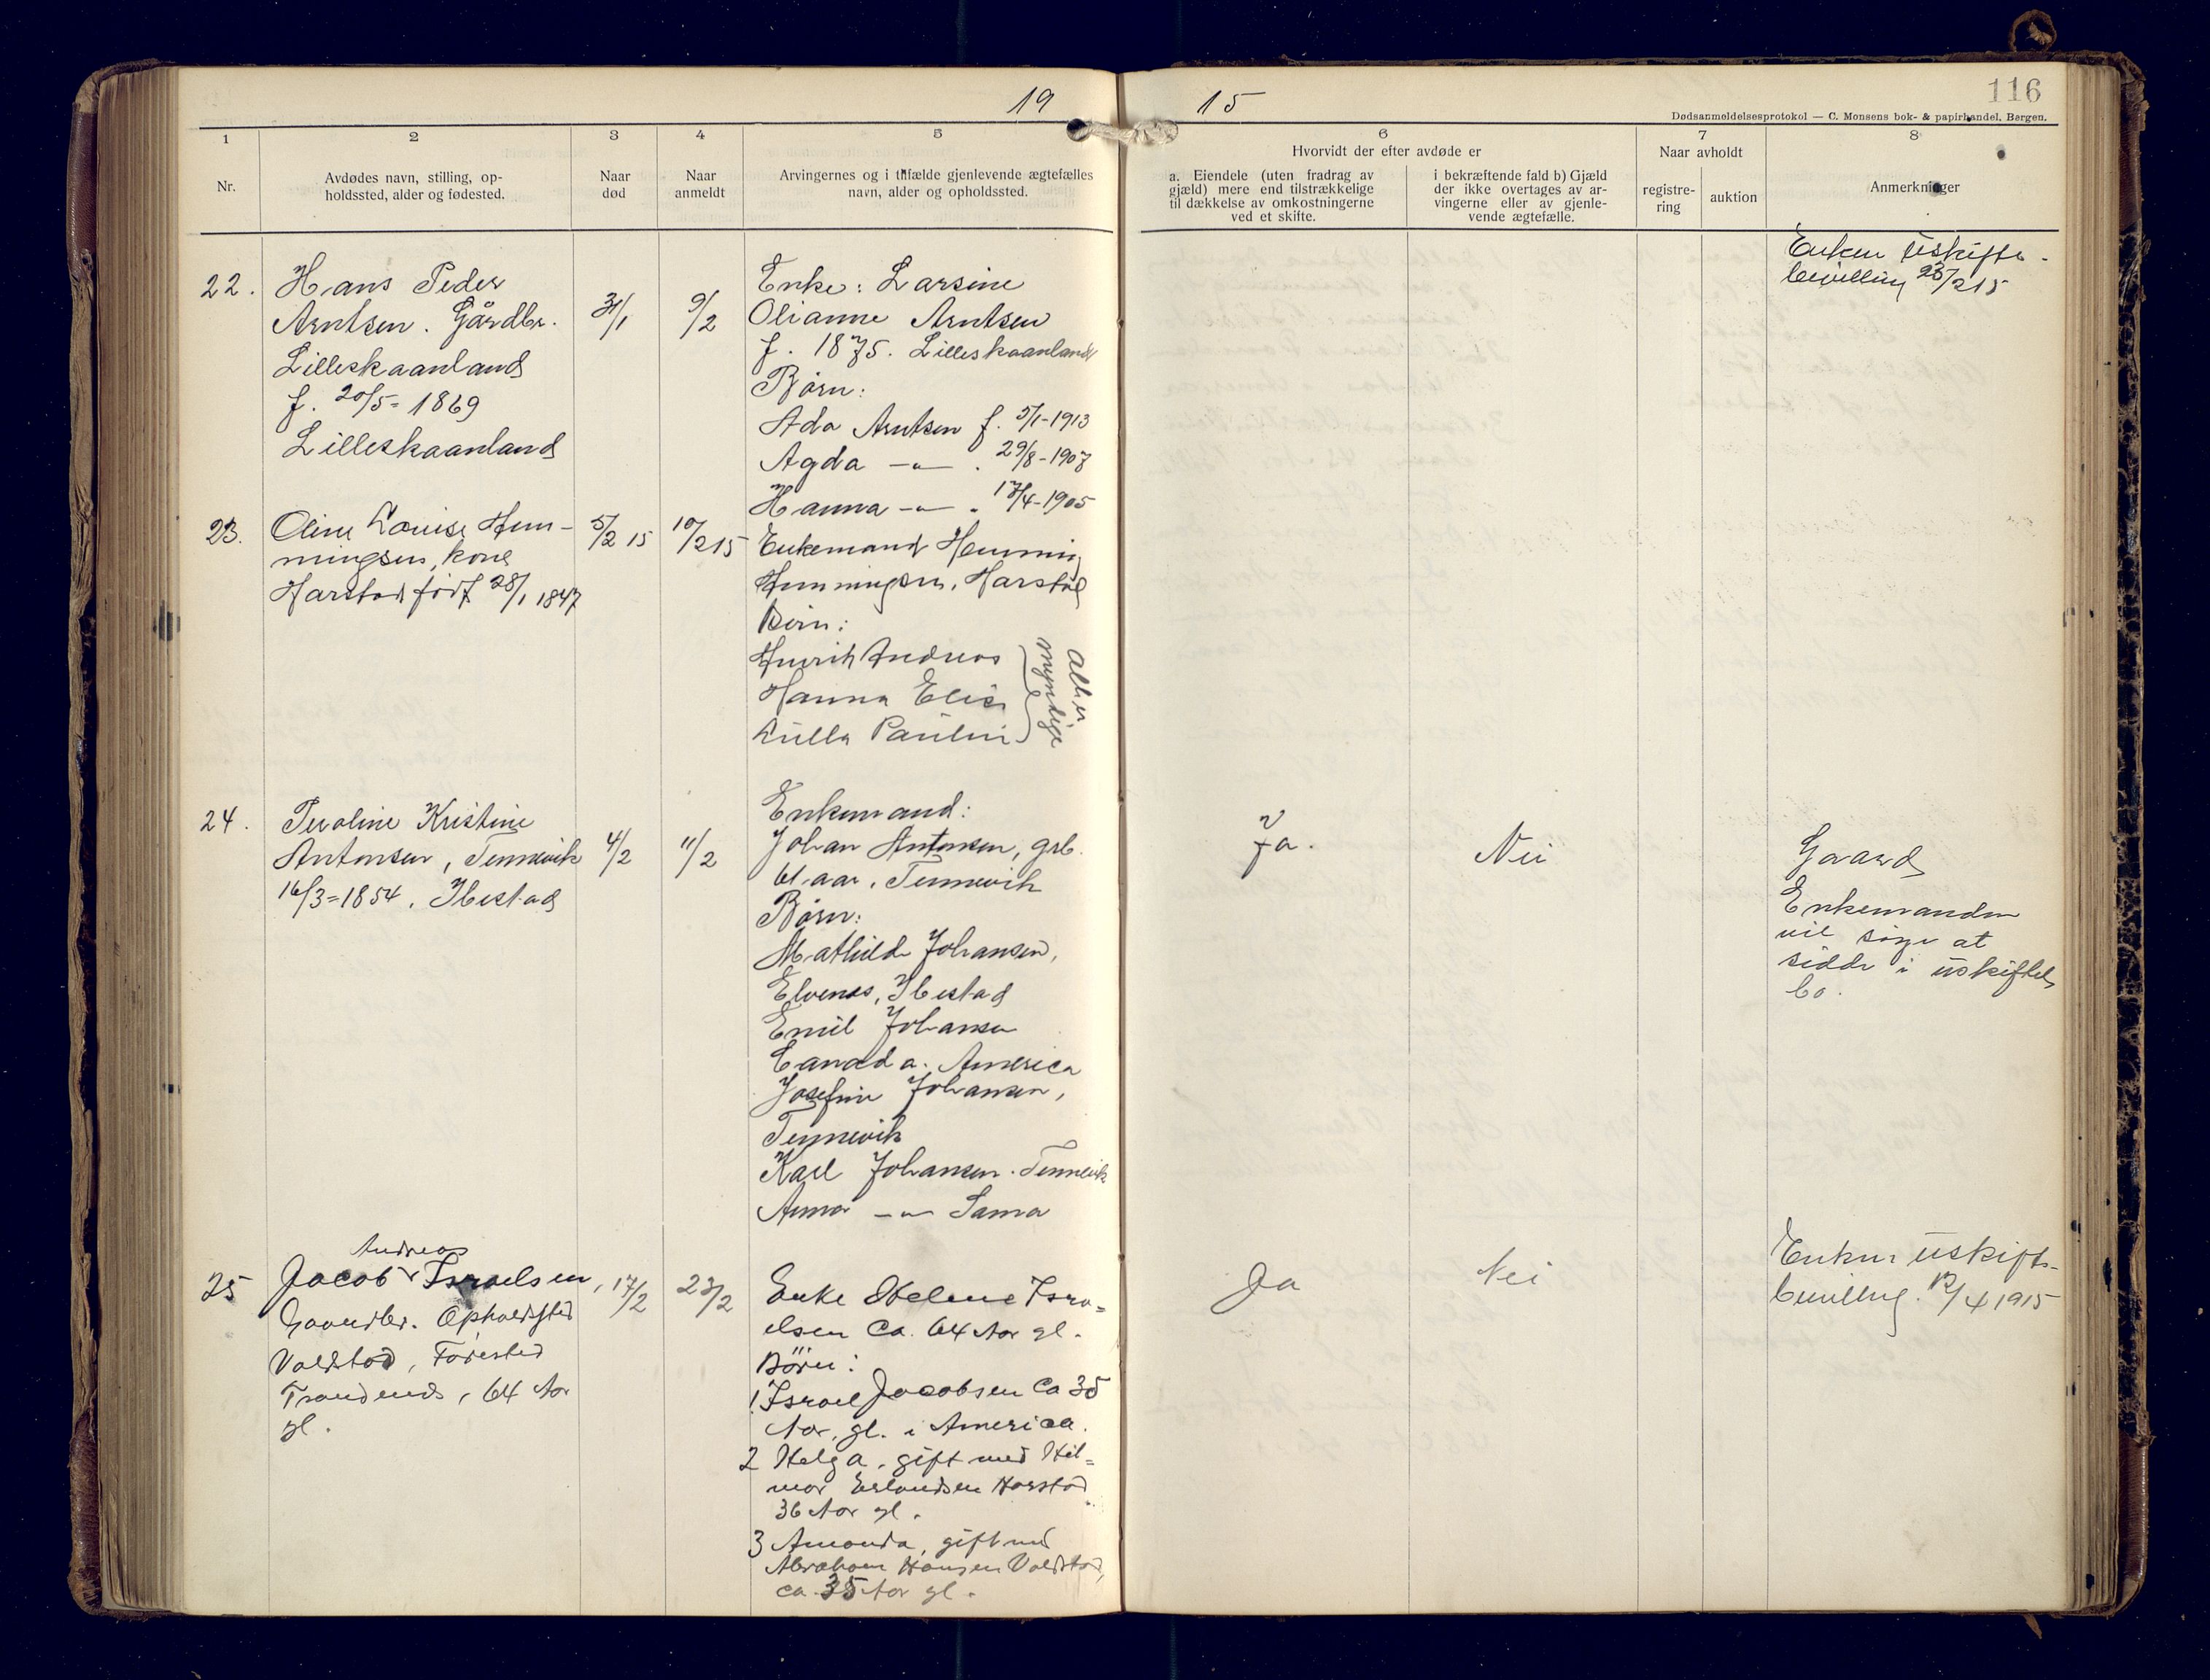 19
15
116
Dødsanmeldelsesprotokol — C. Monsens bok- & papirhandel, Bergen.
1
2
3
4
5
6
7
8
Nr.
Avdødes navn, stilling, op-
holdssted, alder og fødested.
Naar
død
Naar
anmeldt
Arvingernes og i tilfælde gjenlevende ægtefælles
navn, alder og opholdssted.
Hvorvidt der efter avdøde er
a. Eiendele (uten fradrag av
gjæld) mere end tilstrækkelige
til dækkelse av omkostningerne
ved et skifte.
i bekræftende fald b) Gjæld
der ikke overtages av ar-
vingerne eller av gjenle-
vende ægtefælle.
Naar avholdt
registre-
ring
auktion
Anmerkninger
22.
Hans Peder
Arntsen. Gårdbr.
Lilleskaanland
f. 20/5=1869
Lilleskaanland
31/1
9/2
Enke: Larsine
Olianne Arntsen
f. 1875. Lilleskaanland
Børn:
Ada Arntsen f. 5/1-1913
Agda —"— . 29/8-1907
Hanna —"— . 17/4-1905
Enken uskifte-
bevilling 23/2 15
23.
Oline Louise Hen-
ningsen, kone
Harstad født 28/1 1847
5/2 15
10/2 15
Enkemand Henning
Henningsen, Harstad
Børn:
Henrik Andreas
Hanna Elise
Lulla Pauline
Alle er
myndige
24.
Peroline Kristine
Antonsen, Tennevik
16/3=1854. Ibestad
4/2
11/2
Enkemand:
Johan Antonsen, grb.
61 aar. Tennevik
Børn:
Mathilde Johansen,
Elvenes, Ibestad
Emil Johansen
Canada. America
Josefine Johansen,
Tennevik
Karl Johansen. Tennevik
Anna —"— Sama
Ja.
Nei
Gaard
Enkemanden
vil søge at
sidde i uskiftet
bo.
25
Andreas
Jacob Israelsen,
Gaardbr. Opholdsted
Voldstad, Fødested
Trondenes, 64 Aar
gl.
17/2
23/2
Enke Helene Isra=
elsen Ca. 64 Aar gl.
Børn:
1 Israel Jacobsen Ca 35
Aar, gl. i America.
2 Helga, gift med Hil=
mar Erlandsen Harstad
36 Aar gl.
3 Amanda, gift med
Abraham Hansen Voldstad,
ca. 35 Aar gl.
Ja
Nei
Enken uskifte-
bevilling. 12/4 1915